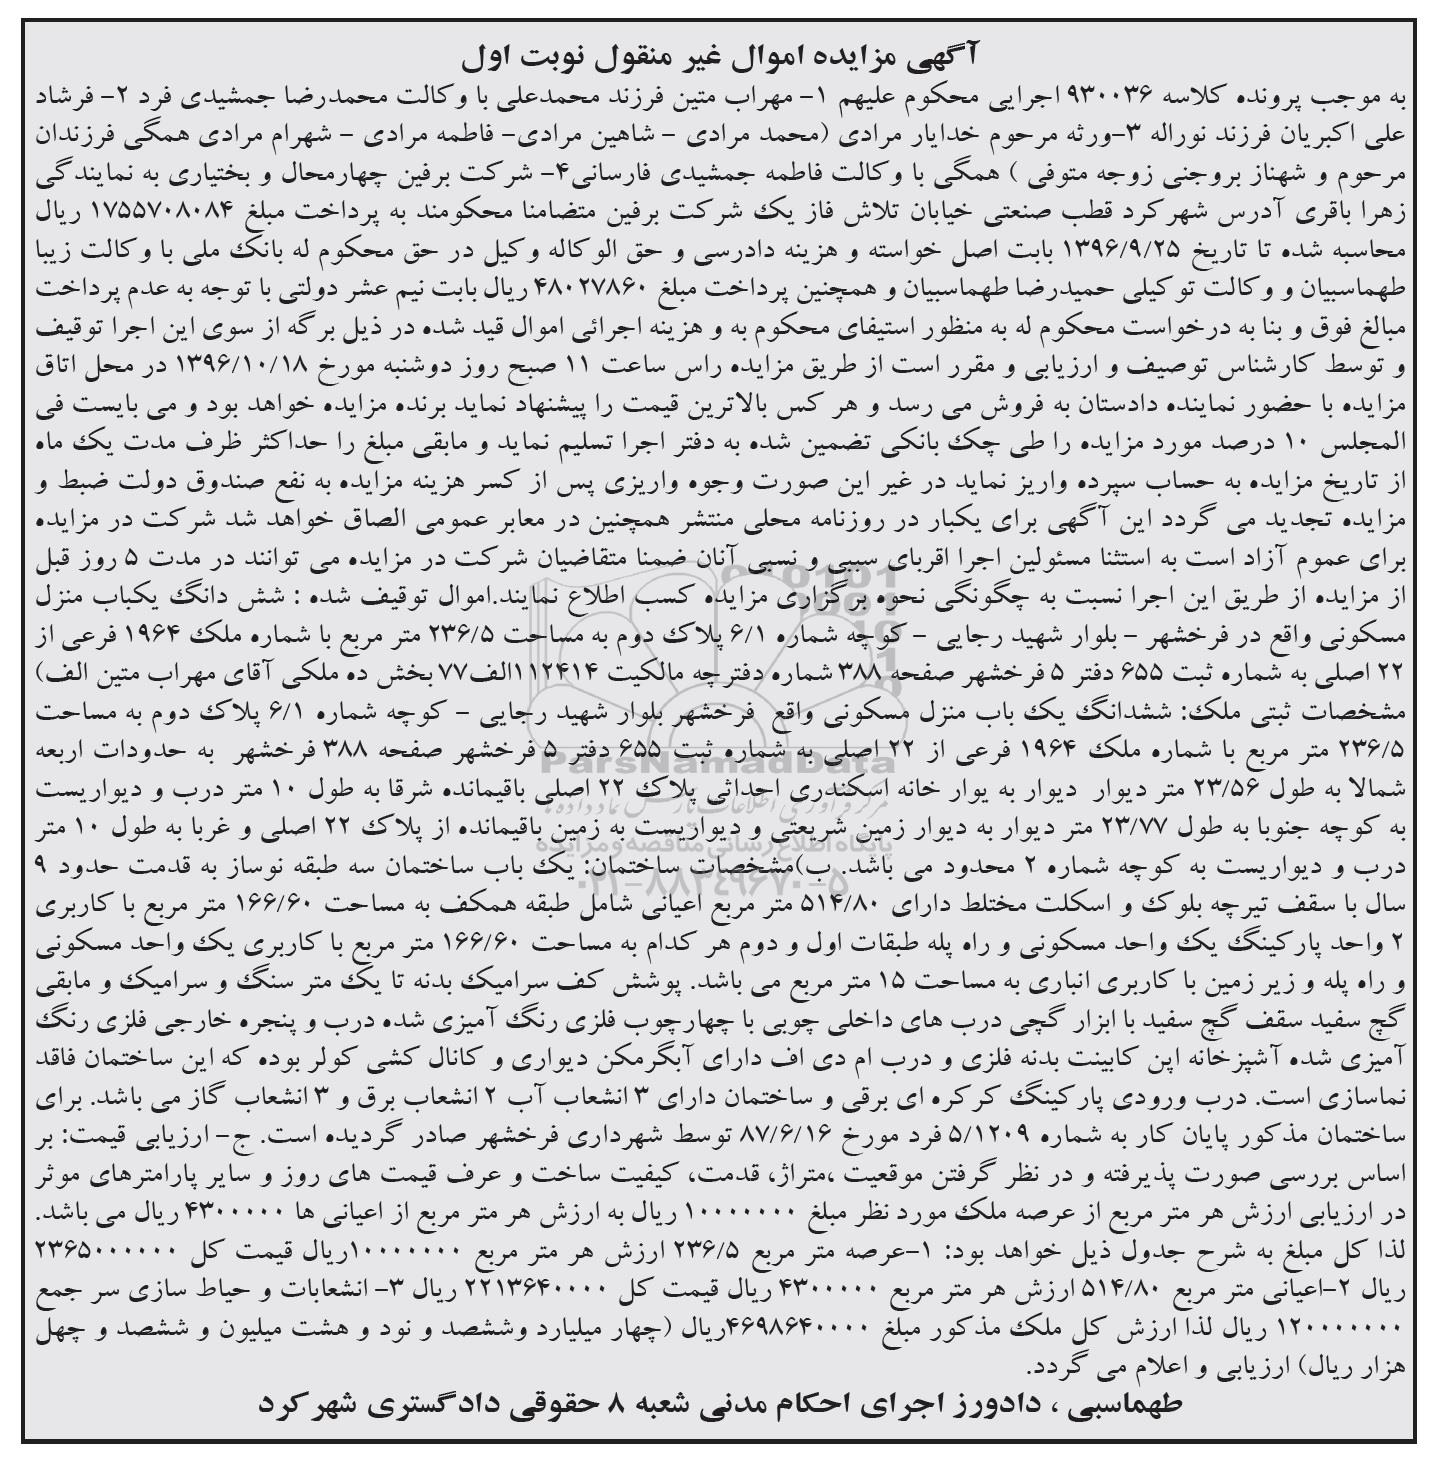 آگهی مزایده اموال غیر منقول نوبت اول
به موجب پرونده کلاسه ۹۳۰۰۳۶ اجرایی محکوم علیهم ۱- مهراب متین فرزند محمدعلی با وکالت محمدرضا جمشیدی فرد ۲- فرشاد
علی اکبریان فرزند نوراله ۳-ورثه مرحوم خدایار مرادی (محمد مرادی - شاهین مرادی- فاطمه مرادی - شهرام مرادی همگی فرزندان
مرحوم و شهناز بروجنی زوجه متوفی ) همگی با وکالت فاطمه جمشیدی فارسانی۴- شرکت برفین چهارمحال و بختیاری به نمایندگی
زهرا باقری آدرس شهرکرد قطب صنعتی خیابان تلاش فاز یک شرکت برفین متضامنا محکومند به پرداخت مبلغ ۱۷۵۵۷۰۸۰۸۴ ریال
محاسبه شده تا تاریخ ۱۳۹۶/۹/۲۵ بابت اصل خواسته و هزینه دادرسی و حق الوکاله وکیل در حق محکوم له بانک ملی با وکالت زیبا
طهماسبیان و وکالت توکیلی حمیدرضا طهماسبیان و همچنین پرداخت مبلغ ۴۸۰۲۷۸۶۰ ریال بابت نیم عشر دولتی با توجه به عدم پرداخت
مبالغ فوق و بنا به درخواست محکوم له به منظور استیفای محکوم به و هزینه اجرائی اموال قید شده در ذیل برگه از سوی این اجرا توقیف
و توسط کارشناس توصیف و ارزیابی و مقرر است از طریق مزایده راس ساعت ۱۱ صبح روز دوشنبه مورخ ۱۳۹۶/۱۰/۱۸ در محل اتاق
مزایده با حضور نماینده دادستان به فروش می رسد و هر کس بالاترین قیمت را پیشنهاد نماید برنده مزایده خواهد بود و می بایست فی
المجلس ۱۰ درصد مورد مزایده را طی چک بانکی تضمین شده به دفتر اجرا تسلیم نماید و مابقی مبلغ را حداکثر ظرف مدت یک ماه
از تاریخ مزایده به حساب سپرده واریز نماید در غیر این صورت وجوه واریزی پس از کسر هزینه مزایده به نفع صندوق دولت ضبط و
مزایده تجدید می گردد این آگهی برای یکبار در روزنامه محلی منتشر همچنین در معابر عمومی الصاق خواهد شد شرکت در مزایده
برای عموم آزاد است به استثنا مسئولین اجرا اقربای سببی و نسبی آنان ضمنا متقاضیان شرکت در مزایده می توانند در مدت ۵ روز قبل
از مزایده از طریق این اجرا نسبت به چگونگی نحوه برگزاری مزایده کسب اطلاع نمایند.اموال توقیف شده : شش دانگ یکباب منزل
مسکونی واقع در فرخشهر - بلوار شهید رجایی - کوچه شماره ۶/۱ پلاک دوم به مساحت ۲۳۶/۵ متر مربع با شماره ملک ۱۹۶۴ فرعی از
۲۲ اصلی به شماره ثبت ۶۵۵ دفتر ۵ فرخشهر صفحه ۳۸۸ شماره دفترچه مالکیت ۱۱۲۴۱۴الف۷۷ بخش ده ملکی آقای مهراب متین الف)
مشخصات ثبتی ملک: ششدانگ یک باب منزل مسکونی واقع فرخشهر بلوار شهید رجایی - کوچه شماره ۶/۱ پلاک دوم به مساحت
۲۳۶/۵ متر مربع با شماره ملک ۱۹۶۴ فرعی از ۲۲ اصلی به شماره ثبت ۶۵۵ دفتر ۵ فرخشهر صفحه ۳۸۸ فرخشهر به حدودات اربعه
شمالا به طول ۲۳/۵۶ متر دیوار دیوار به یوار خانه اسکندری احداثی پلاک ۲۲ اصلی باقیمانده شرقا به طول ۱۰ متر درب و دیواریست
به کوچه جنوبا به طول ۲۳/۷۷ متر دیوار به دیوار زمین شریعتی و دیواریست به زمین باقیمانده از پلاک ۲۲ اصلی و غربا به طول ۱۰ متر
درب و دیواریست به کوچه شماره ۲ محدود می باشد. ب)مشخصات ساختمان: یک باب ساختمان سه طبقه نوساز به قدمت حدود ۹
سال با سقف تیرچه بلوک و اسکلت مختلط دارای ۵۱۴/۸۰ متر مربع اعیانی شامل طبقه همکف به مساحت ۱۶۶/۶۰ متر مربع با کاربری
۲ واحد پارکینگ یک واحد مسکونی و راه پله طبقات اول و دوم هر کدام به مساحت ۱۶۶/۶۰ متر مربع با کاربری یک واحد مسکونی
و راه پله و زیر زمین با کاربری انباری به مساحت ۱۵ متر مربع می باشد. پوشش کف سرامیک بدنه تا یک متر سنگ و سرامیک و مابقی
گچ سفید سقف گچ سفید با ابزار گچی درب های داخلی چوبی با چهارچوب فلزی رنگ آمیزی شده درب و پنجره خارجی فلزی رنگ
آمیزی شده آشپزخانه اپن کابینت بدنه فلزی و درب ام دی اف دارای آبگرمکن دیواری و کانال کشی کولر بوده که این ساختمان فاقد
نماسازی است. درب ورودی پارکینگ کرکره ای برقی و ساختمان دارای ۳ انشعاب آب ۲ انشعاب برق و ۳ انشعاب گاز می باشد. برای
ساختمان مذکور پایان کار به شماره ۵/۱۲۰۹ فرد مورخ ۸۷/۶/۱۶ توسط شهرداری فرخشهر صادر گردیده است. ج- ارزیابی قیمت: بر
اساس بررسی صورت پذیرفته و در نظر گرفتن موقعیت ،متراژ، قدمت، کیفیت ساخت و عرف قیمت های روز و سایر پارامترهای موثر
در ارزیابی ارزش هر متر مربع از عرصه ملک مورد نظر مبلغ ۱۰۰۰۰۰۰۰ ریال به ارزش هر متر مربع از اعیانی ها ۴۳۰۰۰۰۰ ریال می باشد.
لذا کل مبلغ به شرح جدول ذیل خواهد بود: ۱-عرصه متر مربع ۲۳۶/۵ ارزش هر متر مربع ۱۰۰۰۰۰۰۰ریال قیمت کل ۲۳۶۵۰۰۰۰۰۰
ریال ۲-اعیانی متر مربع ۵۱۴/۸۰ ارزش هر متر مربع ۴۳۰۰۰۰۰ ریال قیمت کل ۲۲۱۳۶۴۰۰۰۰ ریال ۳- انشعابات و حیاط سازی سر جمع
۱۲۰۰۰۰۰۰۰ ریال لذا ارزش کل ملک مذکور مبلغ ۴۶۹۸۶۴۰۰۰۰ریال (چهار میلیارد وششصد و نود و هشت میلیون و ششصد و چهل
هزار ریال) ارزیابی و اعلام می گردد.
طهماسبی ، دادورز اجرای احکام مدنی شعبه ۸ حقوقی دادگستری شهر کرد
ParsNamadData
پایگاه اطلاع رسانی مناقصه و مزایده
۰۲۱-۸۸۳۴۹۶۷۰-۵